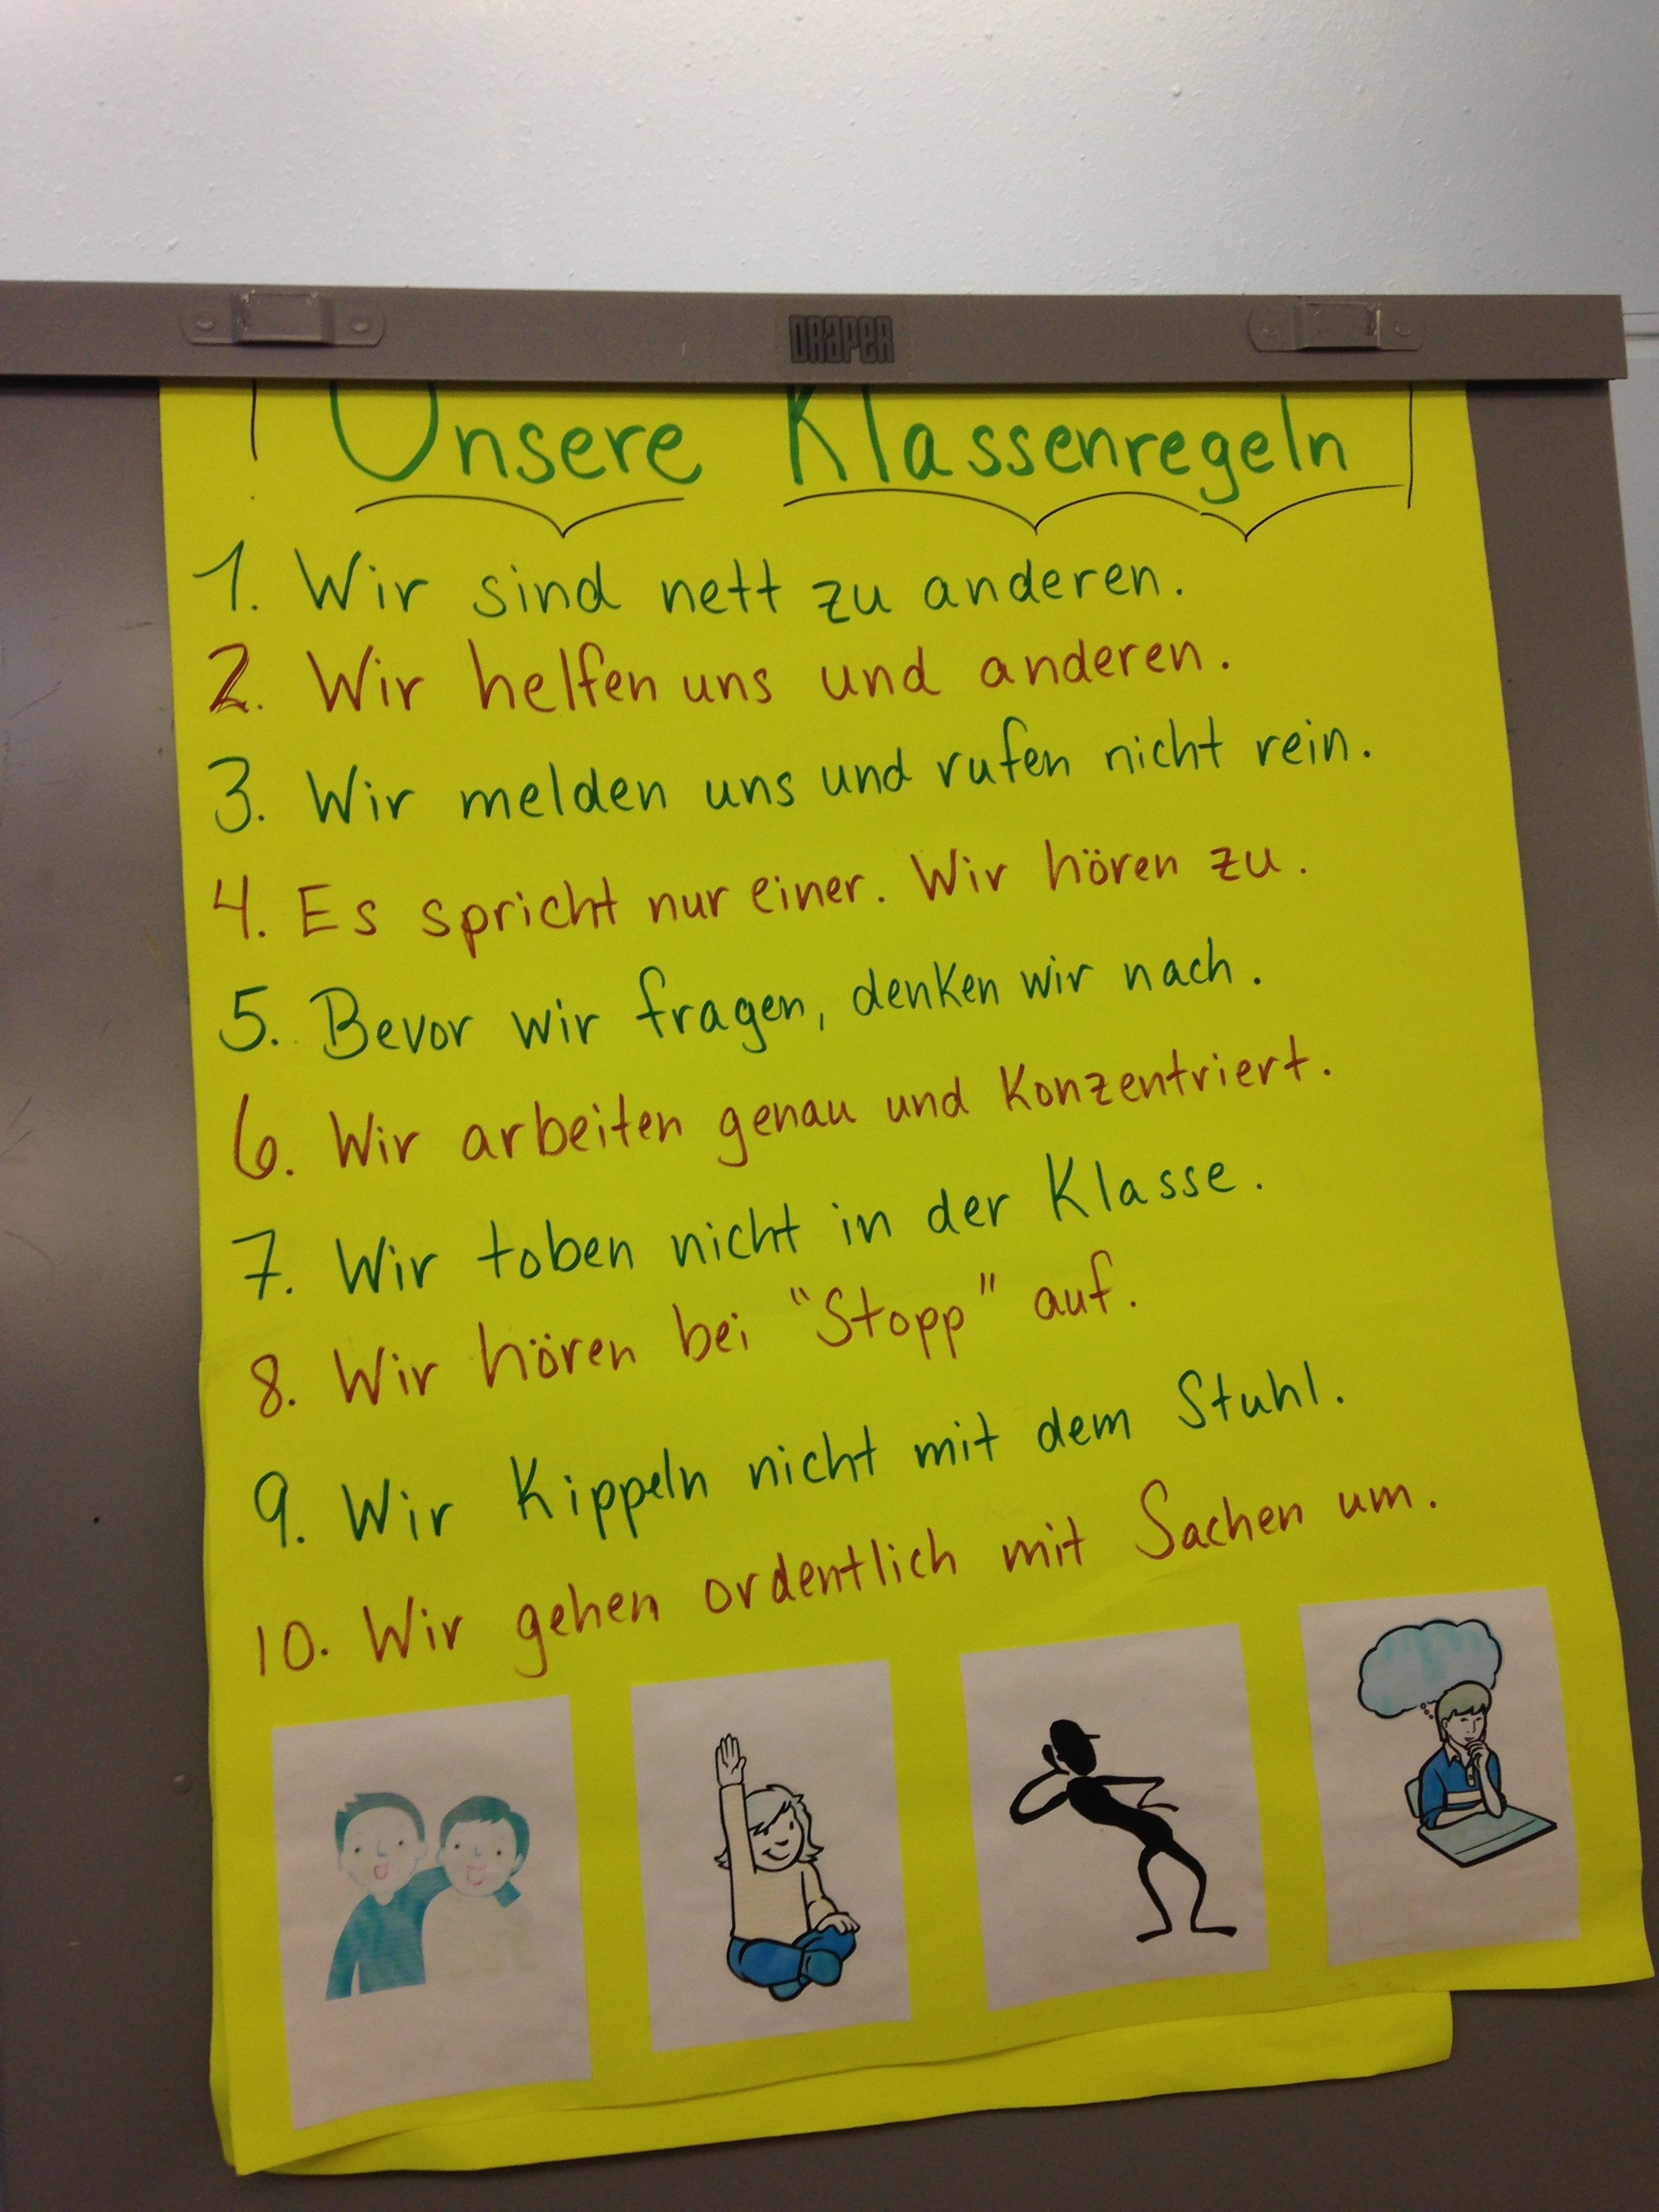 DRAPER
Unsere Klassenregeln
1. Wir sind nett zu anderen.
2. Wir helfen uns und anderen.
3. Wir melden uns und rufen nicht rein.
4. Es spricht nur einer. Wir hören zu.
5. Bevor wir fragen, denken wir nach.
6. Wir arbeiten genau und konzentriert.
7. Wir toben nicht in der Klasse.
8. Wir hören bei "Stopp" auf.
9. Wir kippeln nicht mit dem Stuhl.
10. Wir gehen ordentlich mit Sachen um.